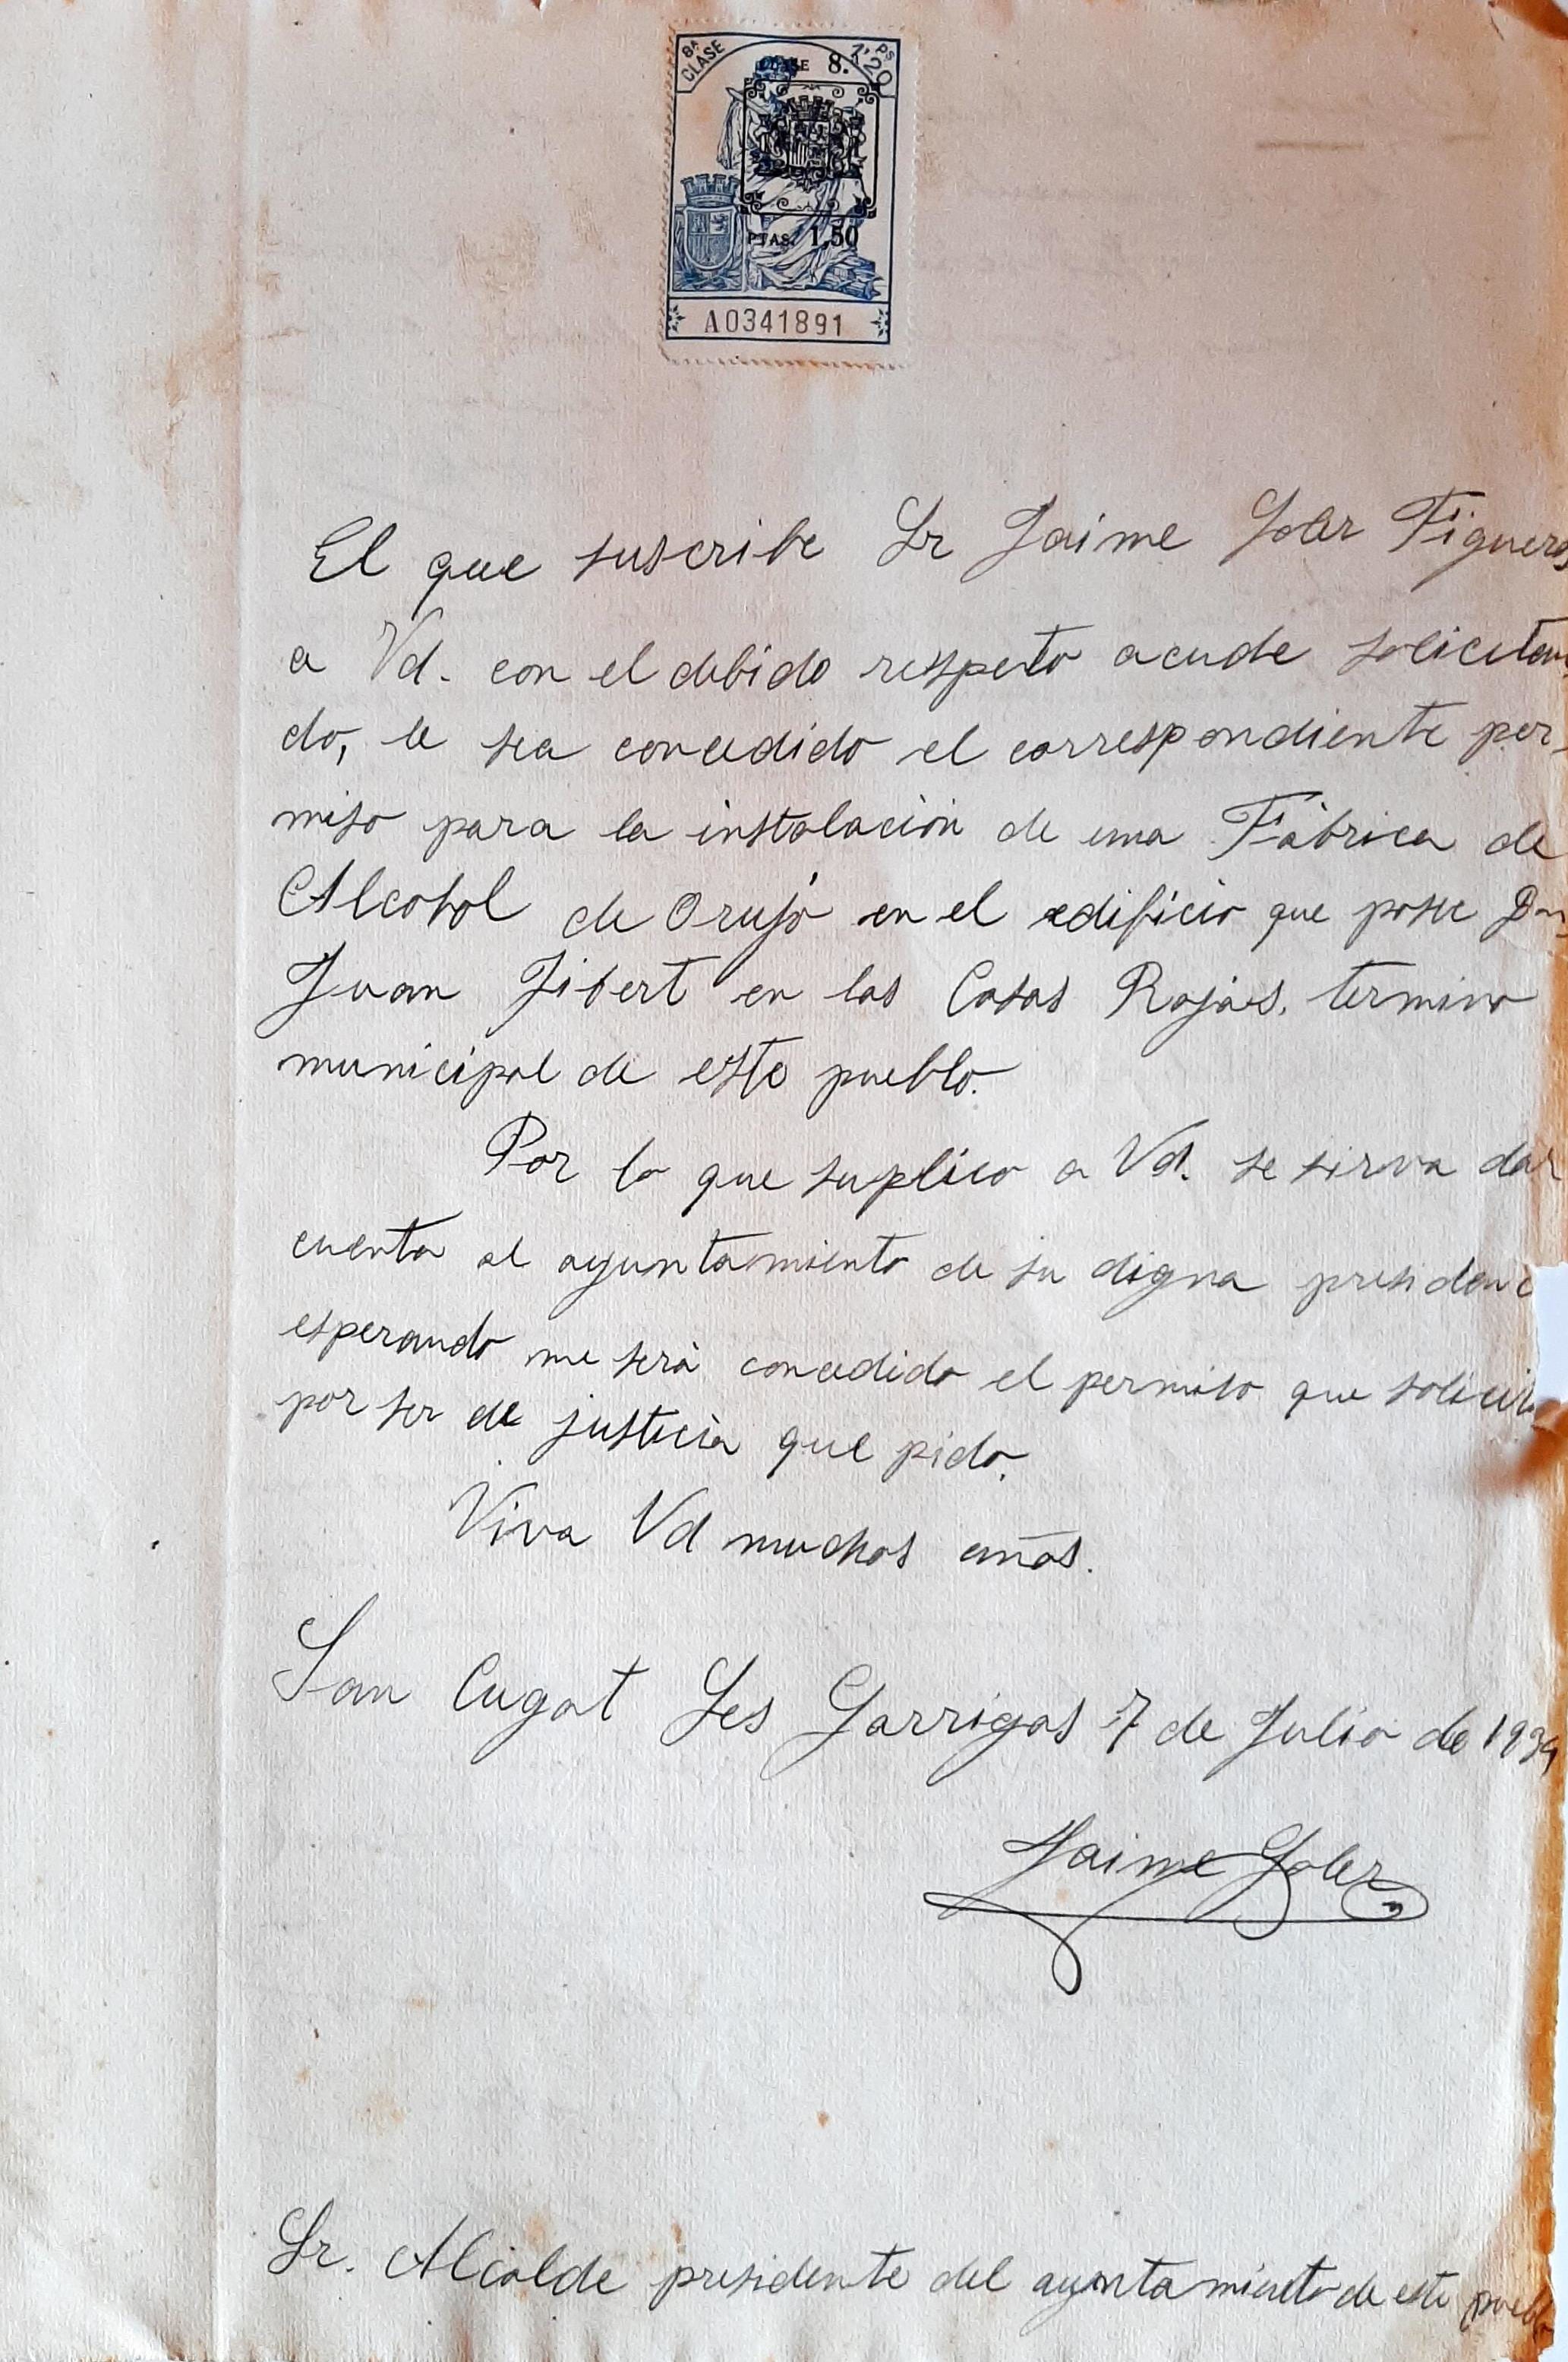 8ª CLASE 1'20 Ps
CLASE 8.ª
PTAS. 1,50
A0341891
El que suscribe Sr Jaime Soler Figueras
a Vd. con el debido respeto acude solicitan
do, le sea concedido el correspondiente per-
miso para la instalación de una Fábrica de
Alcohol de Orujo en el edificio que posee Dn
Juan Jibert en las Casas Rojas, termino
municipal de este pueblo.
Por lo que suplico a Vd. se sirva dar
cuenta al ayuntamiento de su digna presidenc
esperando me será concedido el permiso que solicito
por ser de justicia que pido.
Viva Vd muchos años.
San Cugat Ses Garrigas 7 de Julio de 1934
Jaime Soler
Sr. Alcalde presidente del ayuntamiento de este pueblo